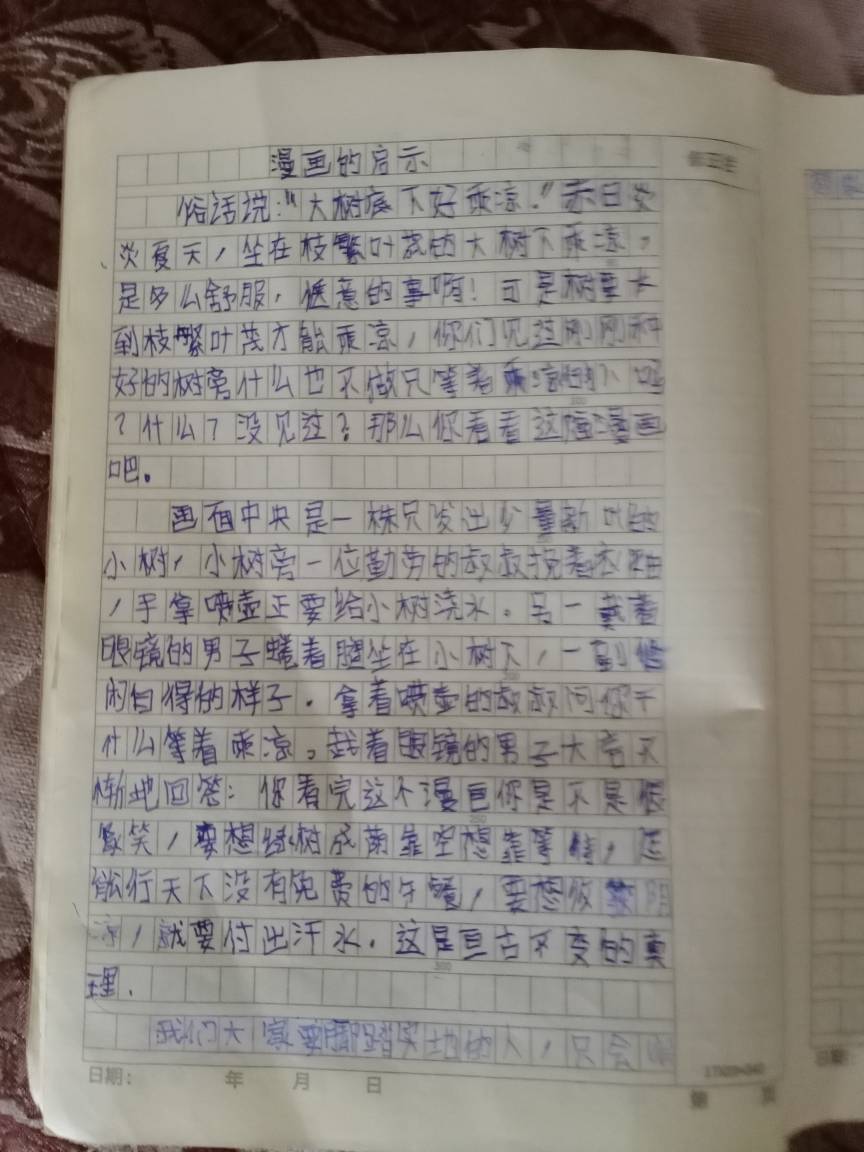 漫画的启示
俗话说：“大树底下好乘凉。”赤日炎
炎夏天，坐在枝繁叶茂的大树下乘凉，
是多么舒服，惬意的事啊！可是树要长
到枝繁叶茂才能乘凉，你们见过刚刚种
好的树旁什么也不做只等着乘凉的人吗
？什么？没见过？那么你看看这幅漫画
吧。
画面中央是一株只发出少量新叶的
小树，小树旁一位勤劳的叔叔挽着衣袖
，手拿喷壶正要给小树浇水。另一戴着
眼镜的男子蜷着腿坐在小树下，一副悠
闲自得的样子。拿着喷壶的叔叔问你干
什么等着乘凉。戴着眼镜的男子大言不
惭地回答：你看完这个漫画你是不是很
笑，要想绿树成荫靠空想靠等待，怎
能行天下没有免费的午餐，要想收获阴
凉，就要付出汗水。这是亘古不变的真
理.
我们大家要脚踏实地的人，只会
日期： 年 月 日
第 页